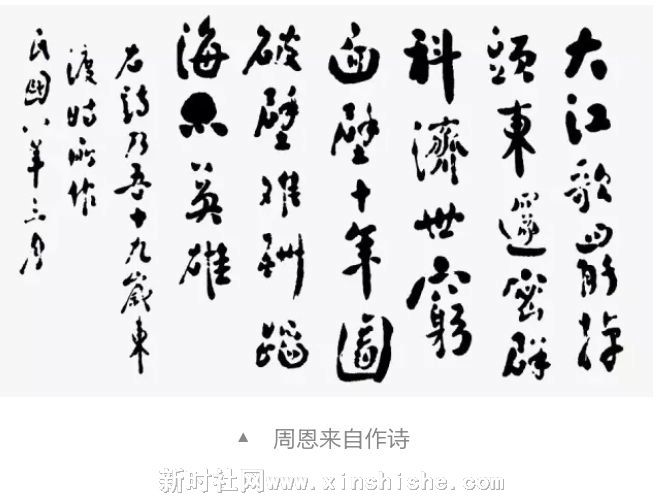 大江歌罷掉
頭東邃密群
科濟世窮
面壁十年圖
破壁难酬蹈
海亦英雄
右詩乃吾十九歲東
渡時所作
民國八年三月
▲ 周恩来自作诗
新时社网www.xinshishe.com